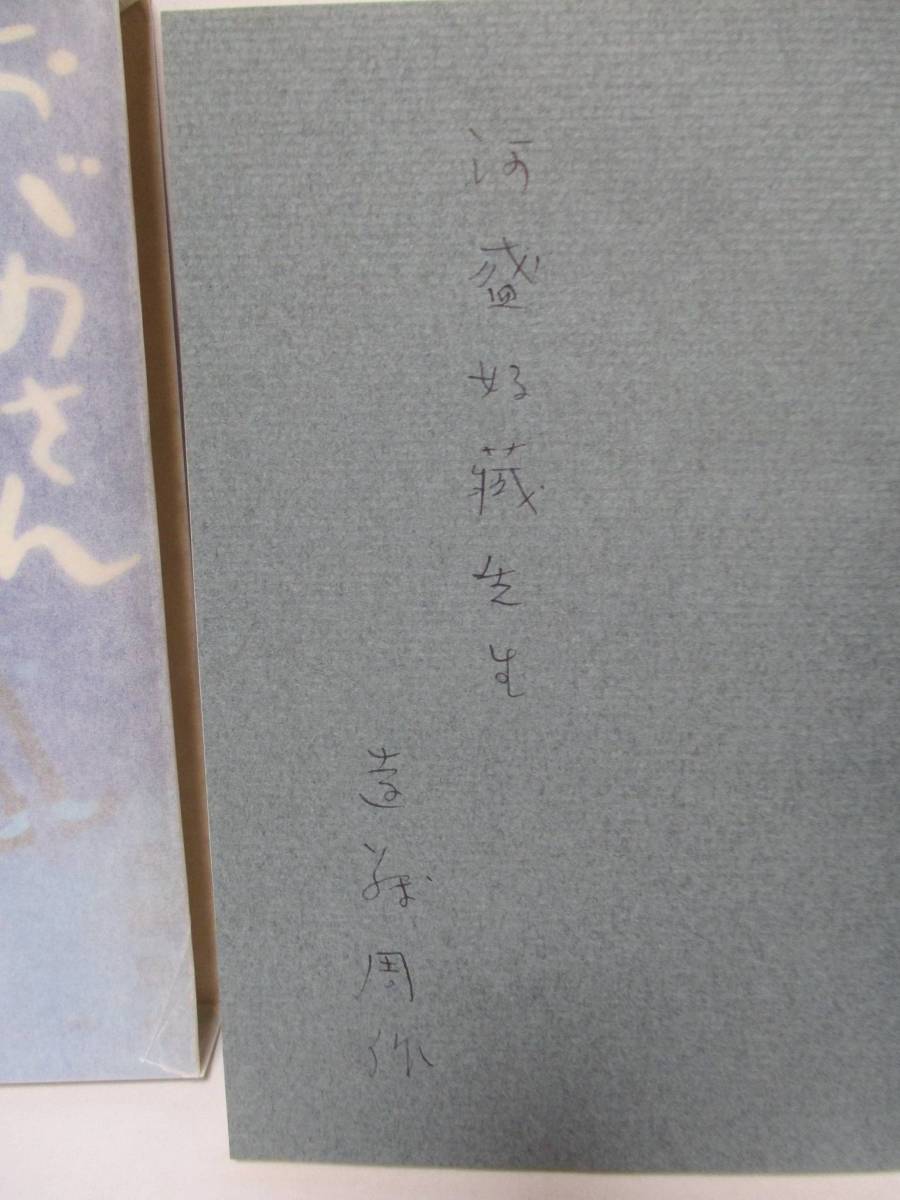 河盛好蔵先生
遠藤周作
わさん